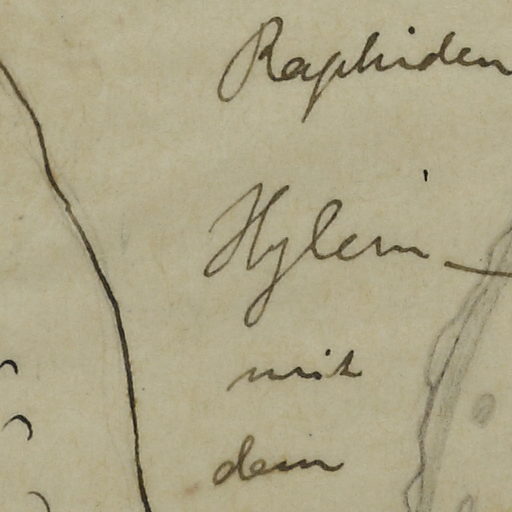 Raphiden
Xylem
mit
dem